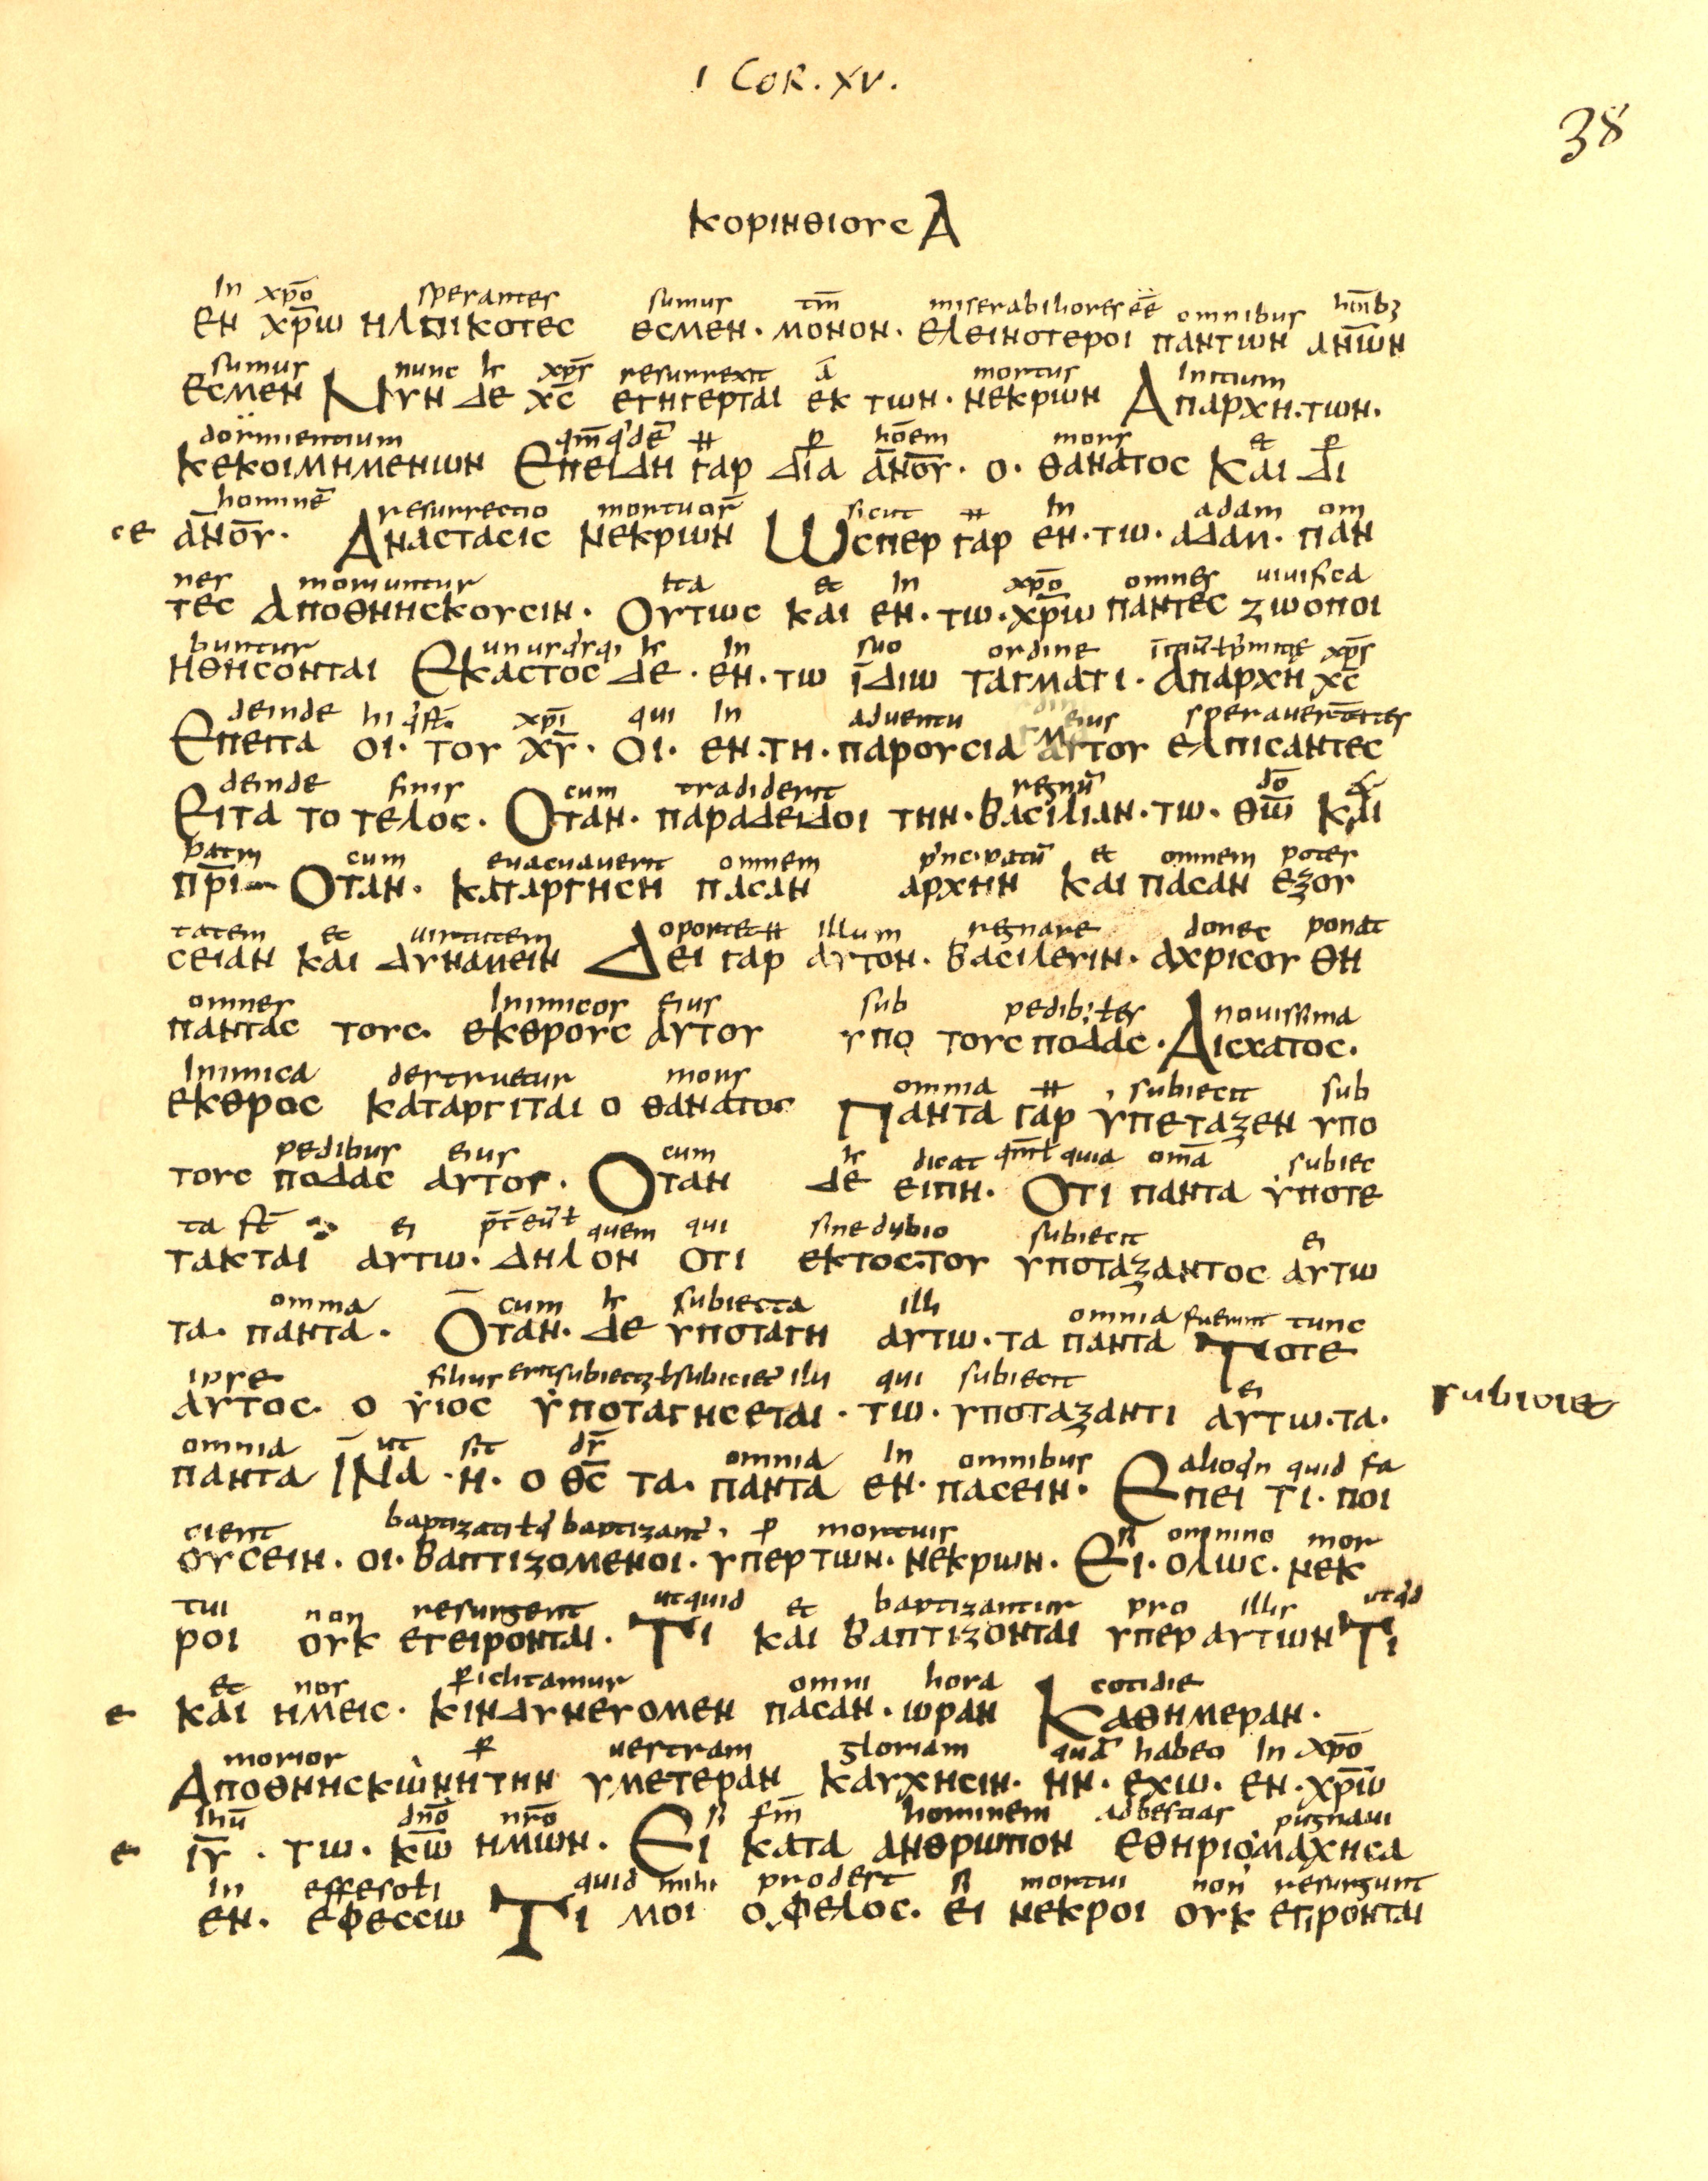 I COR. XV.
38
ΚΟΡΙΝΘΙΟΥC Α
In xp̄o sperantes sumus tm̄ miserabiliores ēē omnibus hōībꝫ
ΕΝ ΧΡ̅Ω ΗΛΠΙΚΟΤΕC ΕCΜΕΝ· ΜΟΝΟΝ· ΕΛΕΙΝΟΤΕΡΟΙ ΠΑΝΤΩΝ ΑΝ̅ΩΝ
sumus nunc xp̄s resurrexit ā mortuis Initium
ΕCΜΕΝ ΝΥΝ ΔΕ ΧC̅ ΕΓΗΓΕΡΤΑΙ ΕΚ ΤΩΝ· ΝΕΚΡΩΝ ΑΠΑΡΧΗ·ΤΩΝ·
dormientium hōem mors et
ΚΕΚΟΙΜΗΜΕΝΩΝ ΕΠΕΙΔΗ ΓΑΡ ΔΙΑ ΑΝ̅ΟΥ̅· Ο· ΘΑΝΑΤΟC ΚΑΙ ΔΙ
hominē resurrectio mortuor̄ sicut In adam om
CΕ ΑΝ̅ΟΥ̅· ΑΝΑCΤΑCΙC ΝΕΚΡΩΝ ΩCΠΕΡ ΓΑΡ ΕΝ·ΤΩ·ΑΔΑΜ· ΠΑΝ
nes moriuntur ita et In xp̄o omnes uiuifica
ΤΕC ΑΠΟΘΝΗCΚΟΥCΙΝ· ΟΥΤΩC ΚΑΙ ΕΝ·ΤΩ·ΧΡ̅Ω ΠΑΝΤΕC ΖΩΟΠΟΙ
buntur In suo ordine xp̄s
ΗΘΗCΟΝΤΑΙ ΕΚΑCΤΟC ΔΕ· ΕΝ·ΤΩ ΙΔΙΩ ΤΑΓΜΑΤΙ· ΑΠΑΡΧΗ ΧC̅
deinde hi xp̄i qui In aduentu eius sperauerant
ΕΠΕΙΤΑ ΟΙ· ΤΟΥ ΧΥ̅· ΟΙ· ΕΝ·ΤΗ·ΠΑΡΟΥCΙΑ ΑΥΤΟΥ ΕΛΠΙCΑΝΤΕC
deinde finis cum tradiderit regnū dō
ΕΙΤΑ ΤΟ ΤΕΛΟC· ΟΤΑΝ· ΠΑΡΑΔΕΙΔΟΙ ΤΗΝ·ΒΑCΙΛΙΑΝ·ΤΩ· ΘΩ̅ ΚΑΙ
patri cum euacuauerit omnem p'ncipatū et omnem potes
ΠΡ̅Ι ΟΤΑΝ· ΚΑΤΑΡΓΗCΗ ΠΑCΑΝ ΑΡΧΗΝ ΚΑΙ ΠΑCΑΝ ΕΞΟΥ
tatem et uirtutem oportet illum regnare donec ponat
CΕΙΑΝ ΚΑΙ ΔΥΝΑΜΕΙΝ ΔΕΙ ΓΑΡ ΑΥΤΟΝ· ΒΑCΙΛΕΥΙΝ· ΑΧΡΙCΟΥ ΘΗ
omnes Inimicos eius sub nouissima
ΠΑΝΤΑC ΤΟΥC· ΕΚΘΡΟΥC ΑΥΤΟΥ ΥΠΟ ΤΟΥC ΠΟΔΑC·ΑΙCΧΑΤΟC·
Inimica destruetur mors omnia subiecit sub
ΕΚΘΡΟC ΚΑΤΑΡΓΙΤΑΙ Ο ΘΑΝΑΤΟC ΠΑΝΤΑ ΓΑΡ ΥΠΕΤΑΞΕΝ ΥΠΟ
pedibus eius cum dicat quia om̄a subiec
ΤΟΥC ΠΟΔΑC ΑΥΤΟΥ· ΟΤΑΝ ΔΕ ΕΙΠΗ· ΟΤΙ ΠΑΝΤΑ ΥΠΟΤΕ
ta ei quem qui sine dubio subiecit ei
ΤΑΚΤΑΙ ΑΥΤΩ· ΔΗΛΟΝ ΟΤΙ ΕΚΤΟC·ΤΟΥ ΥΠΟΤΑΞΑΝΤΟC ΑΥΤΩ
omnia cum subiecta illi omnia fuerint tunc
ΤΑ· ΠΑΝΤΑ· ΟΤΑΝ· ΔΕ ΥΠΟΤΑΓΗ ΑΥΤΩ·ΤΑ ΠΑΝΤΑ ΤΟΤΕ
ipse filius qui subiecit ei
ΑΥΤΟC· Ο ΥΙΟC ΥΠΟΤΑΓΗCΕΤΑΙ·ΤΩ·ΥΠΟΤΑΞΑΝΤΙ ΑΥΤΩ·ΤΑ·
omnia ut sit omnia In omnibus alioqn quid fa
ΠΑΝΤΑ ΙΝΑ ·Η· Ο ΘC̅ ΤΑ· ΠΑΝΤΑ ΕΝ· ΠΑCΕΙΝ· ΕΠΕΙ ΤΙ· ΠΟΙ
cient mortuis si omnino mor
ΟΥCΕΙΝ· ΟΙ·ΒΑΠΤΙΖΟΜΕΝΟΙ·ΥΠΕΡ ΤΩΝ· ΝΕΚΡΩΝ· ΕΙ·ΟΛΩC· ΝΕΚ
tui non resurgent utquid et baptizantur pro illis utqd
ΡΟΙ ΟΥΚ ΕΓΕΙΡΟΝΤΑΙ· ΤΙ ΚΑΙ ΒΑΠΤΙΖΟΝΤΑΙ ΥΠΕΡ ΑΥΤΩΝ ΤΙ
et nos ꝑiclitamur omni hora cotidie
Ε ΚΑΙ ΗΜΕΙC· ΚΙΝΔΥΝΕΥΟΜΕΝ ΠΑCΑΝ·ΩΡΑΝ ΚΑΘΗΜΕΡΑΝ·
morior ꝑ uestram gloriam quā habeo In xp̄o
ΑΠΟΘΝΗCΚΩ ΝΗ ΤΗΝ ΥΜΕΤΕΡΑΝ ΚΑΥΧΗCΙΝ· ΗΝ· ΕΧΩ· ΕΝ·ΧΡ̅Ω
ihū dn̄o nr̄o si hominem ad bestias pugnaui
Ε ΙΥ̅ ·ΤΩ·ΚΩ̅ ΗΜΩΝ· ΕΙ ΚΑΤΑ ΑΝΘΡΩΠΟΝ ΕΘΗΡΙΟΜΑΧΗCΑ
In quid mihi prodest si mortui non resurgunt
ΕΝ· ΕΦΕCCΩ ΤΙ ΜΟΙ ΟΦΕΛΟC· ΕΙ ΝΕΚΡΟΙ ΟΥΚ ΕΓΙΡΟΝΤΑΙ